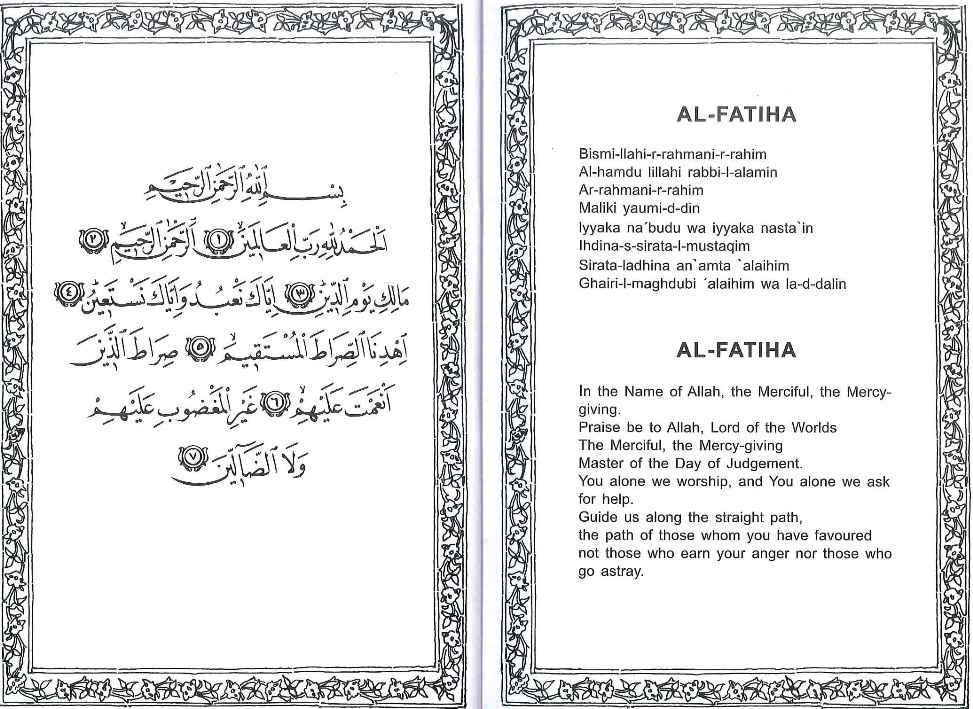 بِسْمِ ٱللَّهِ ٱلرَّحْمَٰنِ ٱلرَّحِيمِ
اَلْحَمْدُ لِلَّهِ رَبِّ ٱلْعَالَمِينَ ١ اَلرَّحْمَٰنِ ٱلرَّحِيمِ ٢
مَالِكِ يَوْمِ ٱلدِّينِ ٣ اِيَّاكَ نَعْبُدُ وَاِيَّاكَ نَسْتَعِينُ ٤
اِهْدِنَا ٱلصِّرَاطَ ٱلْمُسْتَقِيمَ ٥ صِرَاطَ ٱلَّذِينَ
اَنْعَمْتَ عَلَيْهِمْ ٦ غَيْرِ ٱلْمَغْضُوبِ عَلَيْهِمْ
وَلَا ٱلضَّآلِّينَ ٧
AL-FATIHA
Bismi-llahi-r-rahmani-r-rahim
Al-hamdu lillahi rabbi-l-alamin
Ar-rahmani-r-rahim
Maliki yaumi-d-din
Iyyaka na´budu wa iyyaka nasta`in
Ihdina-s-sirata-l-mustaqim
Sirata-ladhina an`amta `alaihim
Ghairi-l-maghdubi ´alaihim wa la-d-dalin
AL-FATIHA
In the Name of Allah, the Merciful, the Mercy-
giving.
Praise be to Allah, Lord of the Worlds
The Merciful, the Mercy-giving
Master of the Day of Judgement.
You alone we worship, and You alone we ask
for help.
Guide us along the straight path,
the path of those whom you have favoured
not those who earn your anger nor those who
go astray.